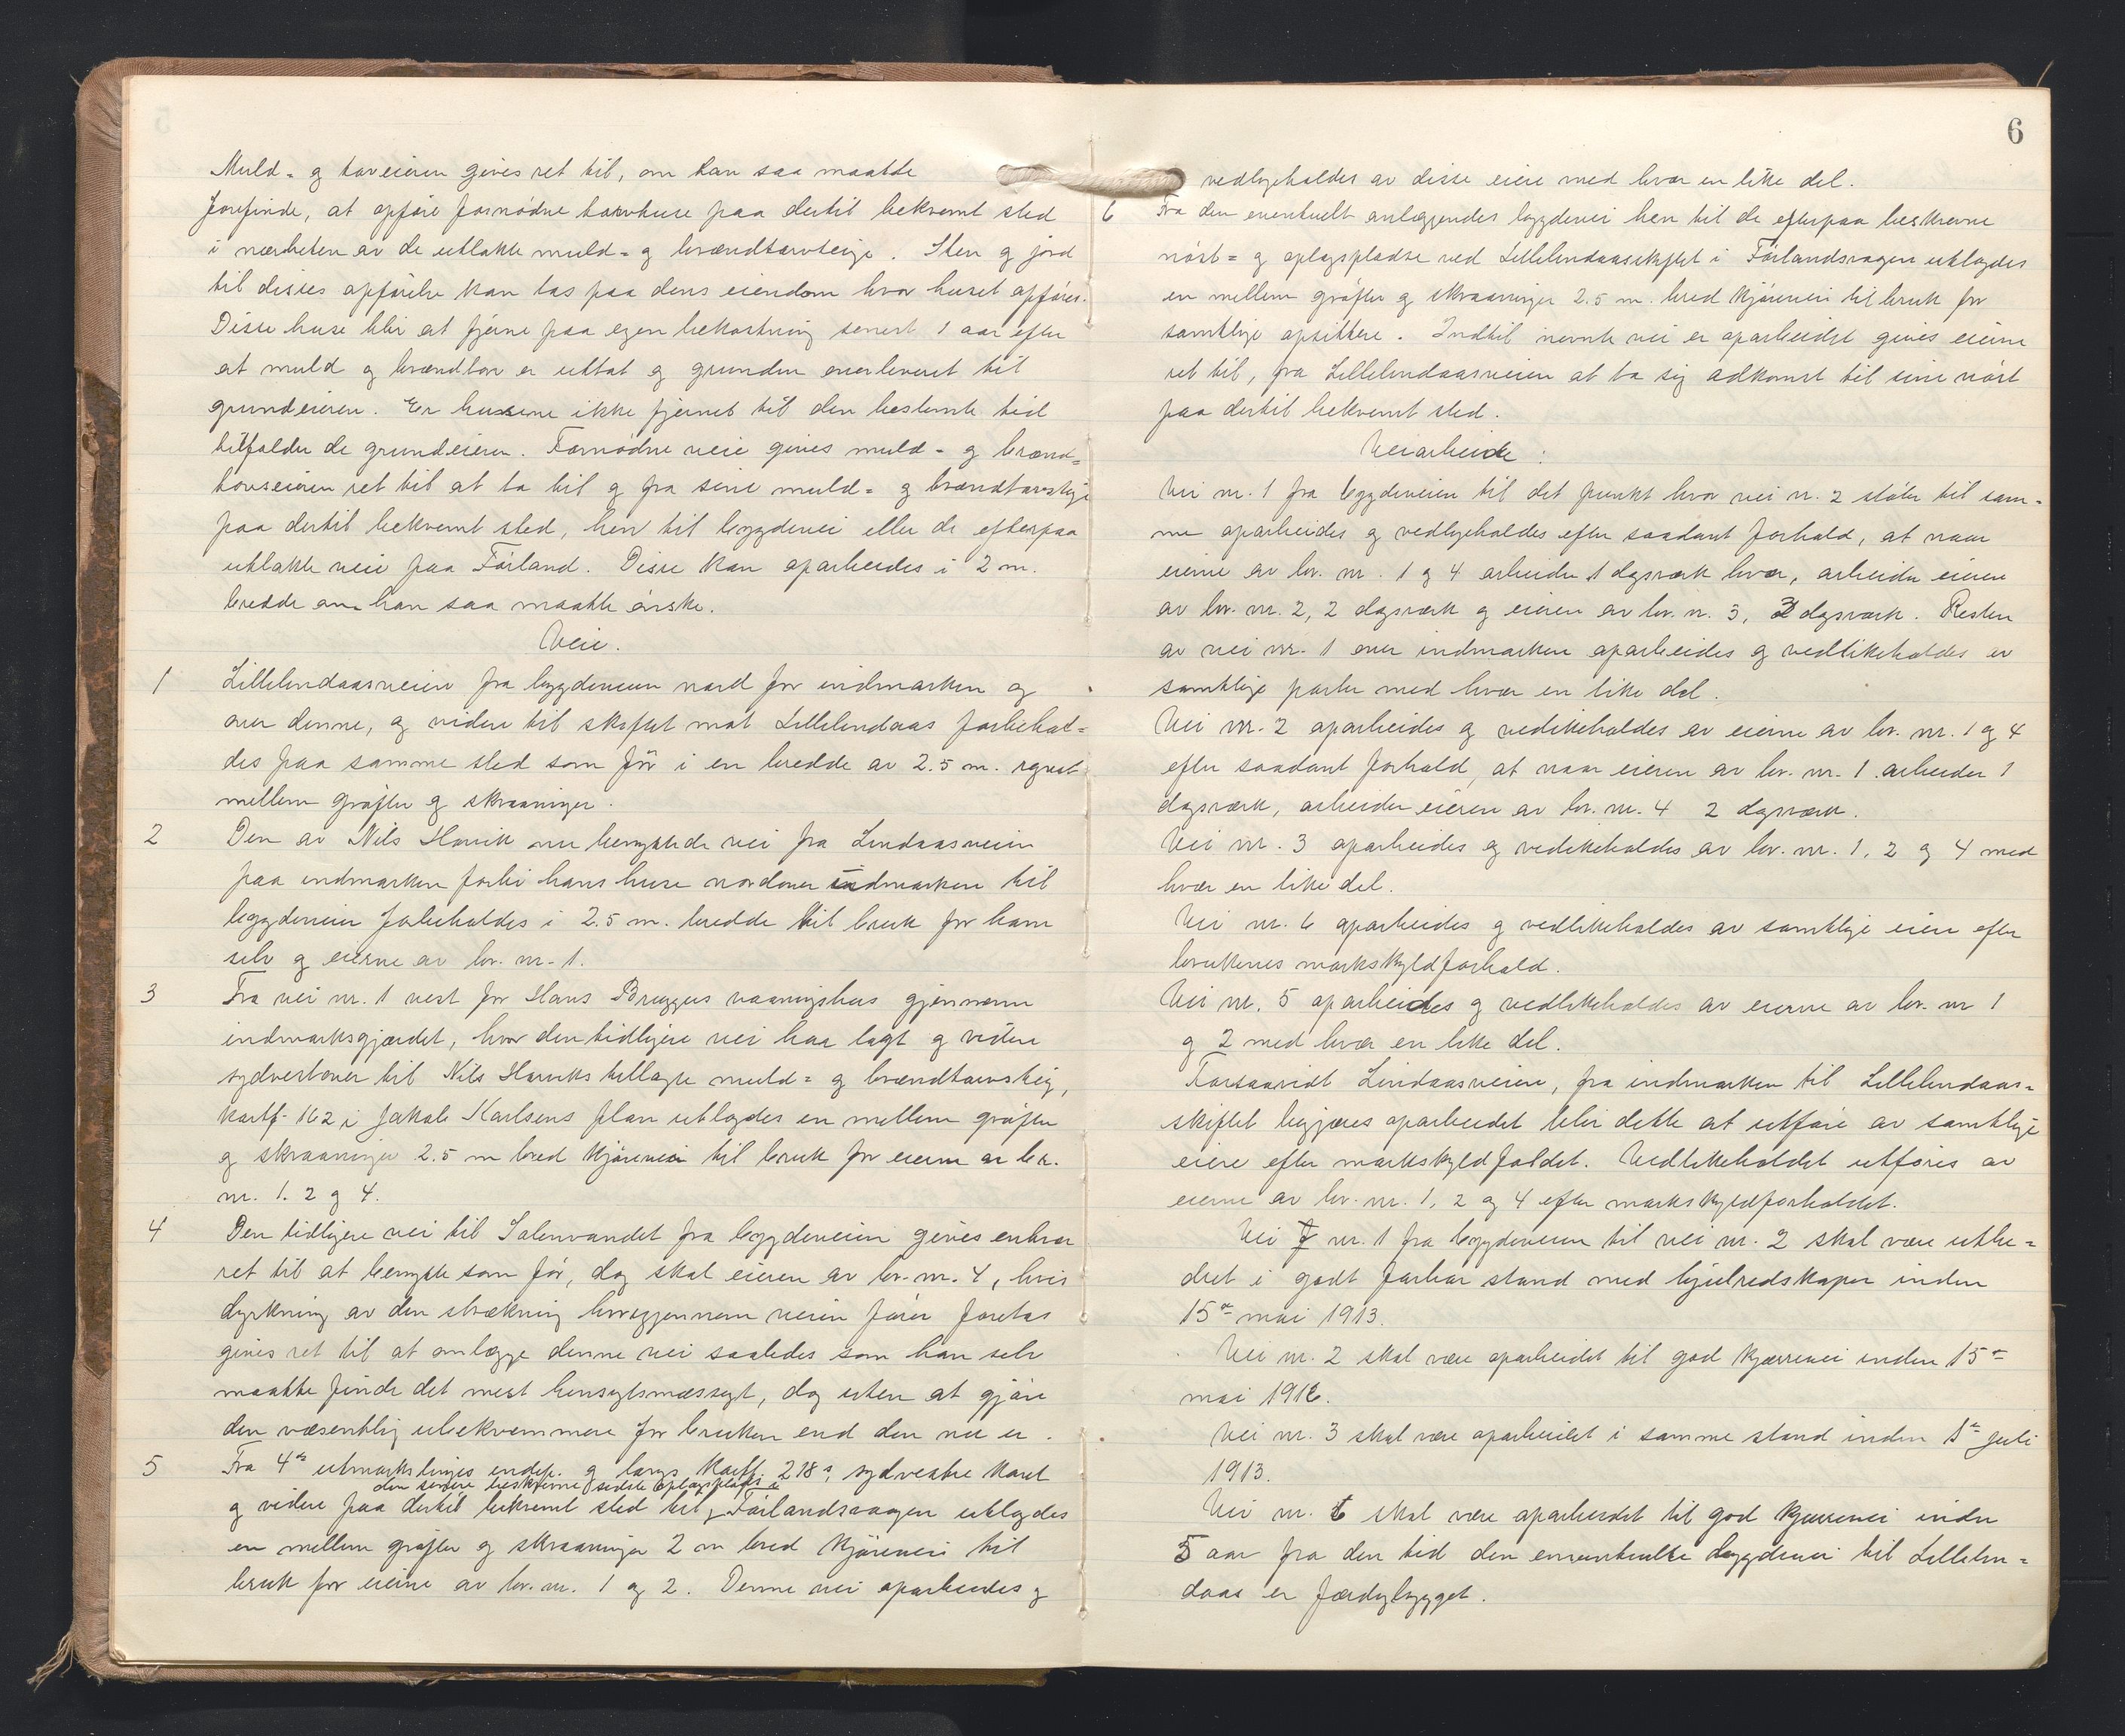 Muld- og torveieren gives ret til, om han saa maatte
forefinde, at opføre fornødne torvhuse paa dertil bekvemt sted
i nærheten av de utlakte muld- og brændtorvteige. Sten og jord
til disses opførelse kan tas paa dens eiendom hvor huset opføres.
Disse huse blir at fjerne paa egen bekostning senest 1 aar efter
at muld og brændtorv er uttat og grunden overleveret til
grundeieren. Er husene ikke fjernet til den bestemte tid
tilfalder de grundeieren. Fornødne veie gives muld- og brænd=
torvseieren ret til at ta til og fra sine muld= og brændtorvteige
paa dertil bekvemt sted, hen til bygdevei eller de efterpaa
utlakte veie paaFørland. Disse kan oparbeides i 2 m.
bredde om han saa maatte ønske.
Veie.
1 Lillelindaasveien fra bygdeveien nord for indmarken og
over denne, og videre til skiftet mot Lillelindaas forbehol=
des paa samme sted som før i en bredde av 2.5 m. regnet
mellem grøfter og skraaninger.
2 Den av Nils Hanvik nu benyttede vei fra Lindaasveien
paa indmarken forbi hans huse nordover indmarken til
bygdeveien forbeholdes i 2.5 m. bredde til bruk for ham
selv og eierne av br. nr. 1.
3 Fra vei nr. 1 vest for Hans Bruggers vaaningshus gjennem
indmarksgjærdet, hvor den tidligere vei har lagt og videre
sydvestover til Nils Hanviks tillagte muld= og brændtorvteig,
kartf. 162 i Jakob Karlsens plan utlægdes en mellem grøfter
og skraaninger 2.5 m bred kjørevei til bruk for eierne av br.
nr. 1. 2 og 4.
4 Den tidligere vei til Salenvandet fra bygdeveien gives enhver
ret til at benytte som før, dog skal eieren av br. nr. 4, hvis
dyrkning av den strækning hvorigjennem veien fører foretas
gives ret til at omlægge denne vei saaledes som han selv
maatte finde det mest hensigtsmæssigt, dog uten at gjøre
den væsentlig ubekvemmere for bruken end den nu er.
5 Fra 4de utmarkslinjes endep. og langs kartf. 218 a, sydvestre kant
den senere beskrevne sidste oplagsplads i
og videre paa dertil bekvemt sted til Førlandsvaagen utlægdes
en mellem grøfter og skraaninger 2 m bred kjørevei til
bruk for eierne av br. nr. 1 og 2. Denne vei oparbeides og
6
vedligeholdes av disse eiere med hver en like del.
6 Fra den eventuelt anlæggendes bygdevei hen til de efterpaa beskrevne
nøst= og oplagspladse ved Lillelindaasskiftet i Førlandsvagen utlægdes
en mellem grøfter og skraaninger 2.5 m. bred kjørevei til bruk for
samtlige opsittere. Indtil nevnte vei er oparbeidet gives eierne
ret til, fra Lillelindaasveien at ta sig adkomst til sine nøst
paa dertil bekvemt sted.
Veiarbeide:
Vei nr. 1 fra bygdeveien til det punkt hvor vei nr. 2 støter til sam=
me oparbeides og vedligeholdes efter saadant forhold, at naar
eierne av br. nr. 1 og 4 arbeider 1 dagsværk hver, arbeider eieren
av br. nr. 2, 2 dagsværk og eieren av br. nr. 3, 3 dagsværk. Resten
av vei nr. 1 over indmarken oparbeides og vedlikeholdes av
samtlige parter med hver en like del.
Vei nr. 2 oparbeides og vedikeholdes av eierne av br. nr. 1 og 4
efter saadant forhold, at naar eieren av br. nr. 1 arbeider 1
dagsværk, arbeider eieren av br. nr. 4 2 dagsværk.
Vei nr. 3 oparbeides og vedikeholdes av br. nr. 1, 2 og 4 med
hver en like del.
Vei nr. 6 oparbeides og vedlikeholdes av samtlige eiere efter
brukenes markskyldforhold.
Vei nr. 5 oparbeides og vedlikeholdes av eierne av br. nr 1
og 2 med hver en like del.
Forsaavidt Lindaasveien, fra indmarken til Lillelindaas=
skiftet begjæres oparbeidet blir dette at utføre av samtlige
eiere efter markskyldfoldet. Vedlikeholdet utføres av
eierne av br. nr. 1, 2 og 4 efter markskyldforholdet.
Vei nr. 1 fra bygdeveien til vei nr. 2 skal være utbe=
dret i godt farbar stand med hjulredskaper inden
15de mai 1913.
Vei nr. 2 skal være oparbeidet til god kjærrevei inden 15de
mai 1916.
Vei nr. 3 skal være oparbeidet i samme stand inden 1ste juli
1913.
Vei nr. 6 skal være oparbeidet til god kjærrevei inden
5 aar fra den tid den eventuelle bygdevei til Lillelin=
daas er færdigbygget.